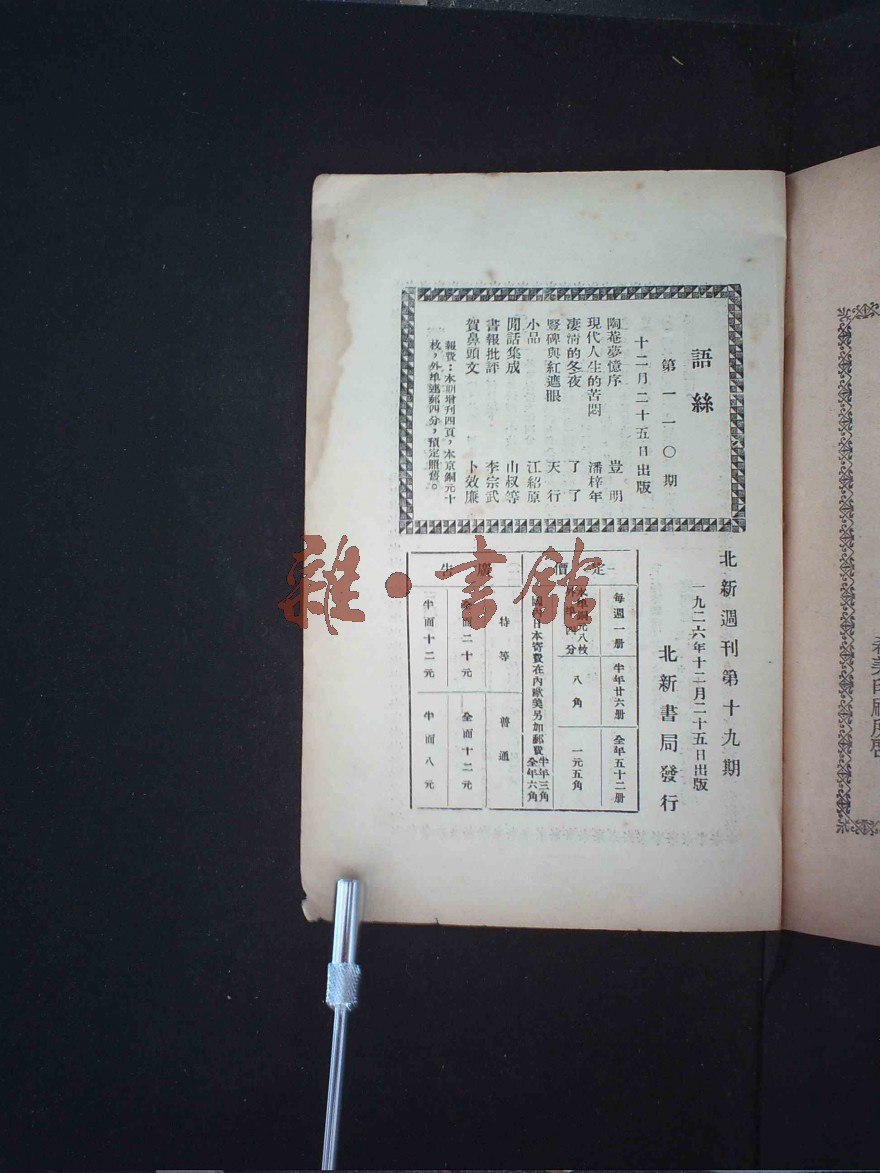 語絲
第一一〇期
十二月二十五日出版
陶菴夢憶序 豈明
現代人生的苦悶 潘梓年
凄清的冬夜 了了
豎碑與紅遮眼 天行
小品 江紹原
閒話集成 山叔等
書報批評 李宗武
賀鼻頭文 卜效廉
報費：本期增刊四頁，本京銅元十
枚，外埠連郵四分，預定照舊。
北新週刊第十九期
一九二六年十二月二十五日出版
北新書局發行
定價
每週一册 半年廿六册 全年五十二册
本埠銅元八枚
外埠四分
八角 一元五角
國內日本寄費在內歐美另加郵費
半年三角
全年六角
廣告
特等 普通
全面二十元 全面十二元
半面十二元 半面八元
雜·書館